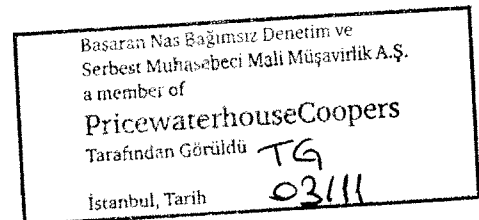 Başaran Nas Bağımsız Denetim ve
Serbest Muhasebeci Mali Müşavirlik A.Ş.
a member of
PricewaterhouseCoopers
Tarafından Görüldü TG
İstanbul, Tarih 03/11